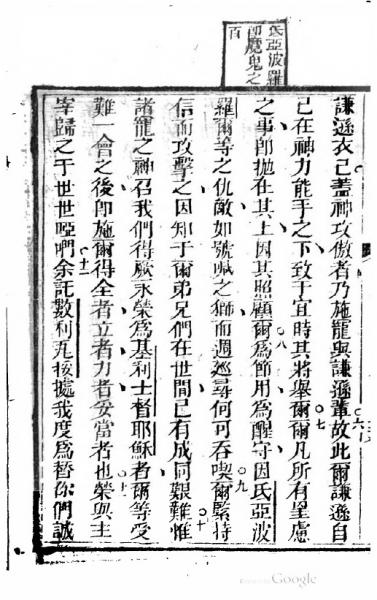 氐亞波羅
即魔鬼之
百
謙遜衣己蓋神攻傲者乃施寵與謙遜輩故此爾謙遜自
○六
己在神力能手之下致于宜時其將舉爾爾凡所有呈慮
○七
之事卽拋在其上因其照顧爾為節用為醒守因氐亞波
○八
羅爾等之仇敵如號喊之獅而週廵尋何可吞喫爾緊持
○九
信而攻擊之因知于爾弟兄們在世間已有成同艱難惟
○十
諸寵之神召我們得厥永榮為基利士督耶穌者爾等受
難一會之後卽施爾得全者立者力者妥當者也榮與主
十一
宰歸之于世世啞們余託數利瓦接處我度為替你們誠
十二
Google